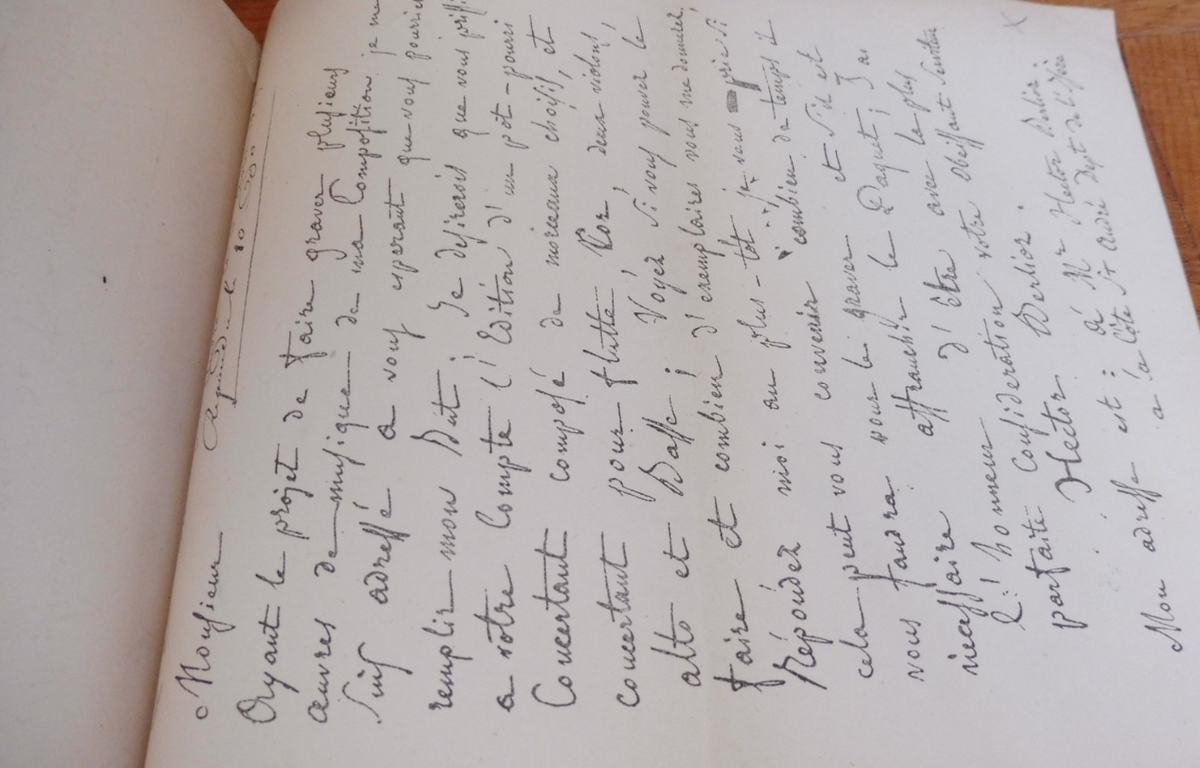 Monsieur
Ayant le projet de faire graver plusieurs
œuvres de musique de ma Composition je me
suis adressé a vous esperant que vous pourriez
remplir mon But; Je desirerois que vous
a votre Compte l'Edition d'un pot-pourri
Concertant composé de morceaux choisis, et
concertant pour flutte Cor, deux violons,
alto et Basse; Voyéz si vous pouvez le
faire et combien d'exemplaires vous me donnerez,
Répóndéz moi au plus-tôt je vous prie si
cela peut vous convenir combien de temps il
vous faudra pour le graver et s'il est
necessaire d'affranchir le Paquet; J'ai
L'honneur d'être avec la plus
parfaite Consideration votre obeissant
Hector Berlioz.
Mon adresse est: à Mr Hector Berlioz
a la Côte St André Dept de l'Isère